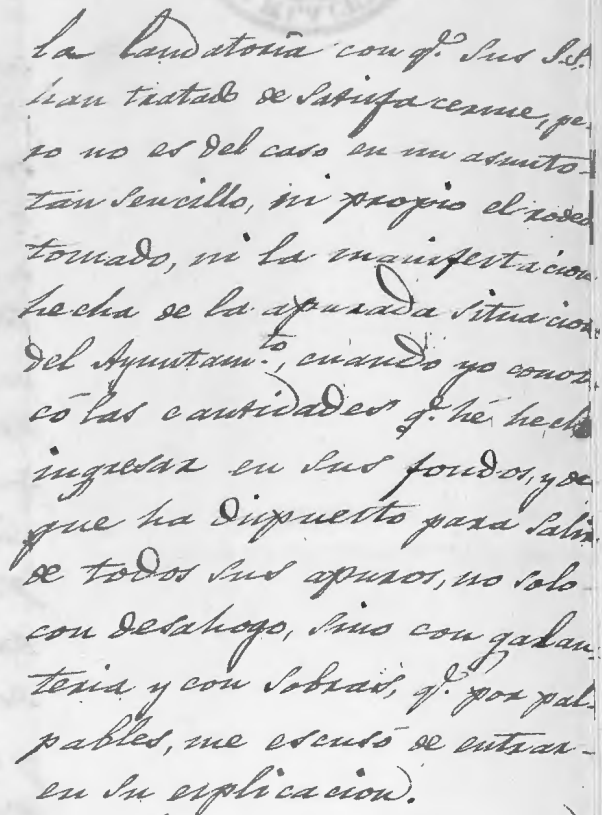 la laudatoria con q.e sus S.S.
han tratado de satisfacerme, pe-
ro no es del caso en un asunto
tan sencillo, ni propio el rodeo
tomado, ni la manifestacion
hecha de la apurada situacion
del Ayuntam.to, cuando yo conoz-
có las cantidades q.e hé hecho
ingresar en sus fondos, y de
que ha dispuesto para salir
de todos sus apuros, no solo
con desahogo, sino con galan-
teria y con sobras, q.e por pal-
pables, me escusó de entrar
en su esplicacion.